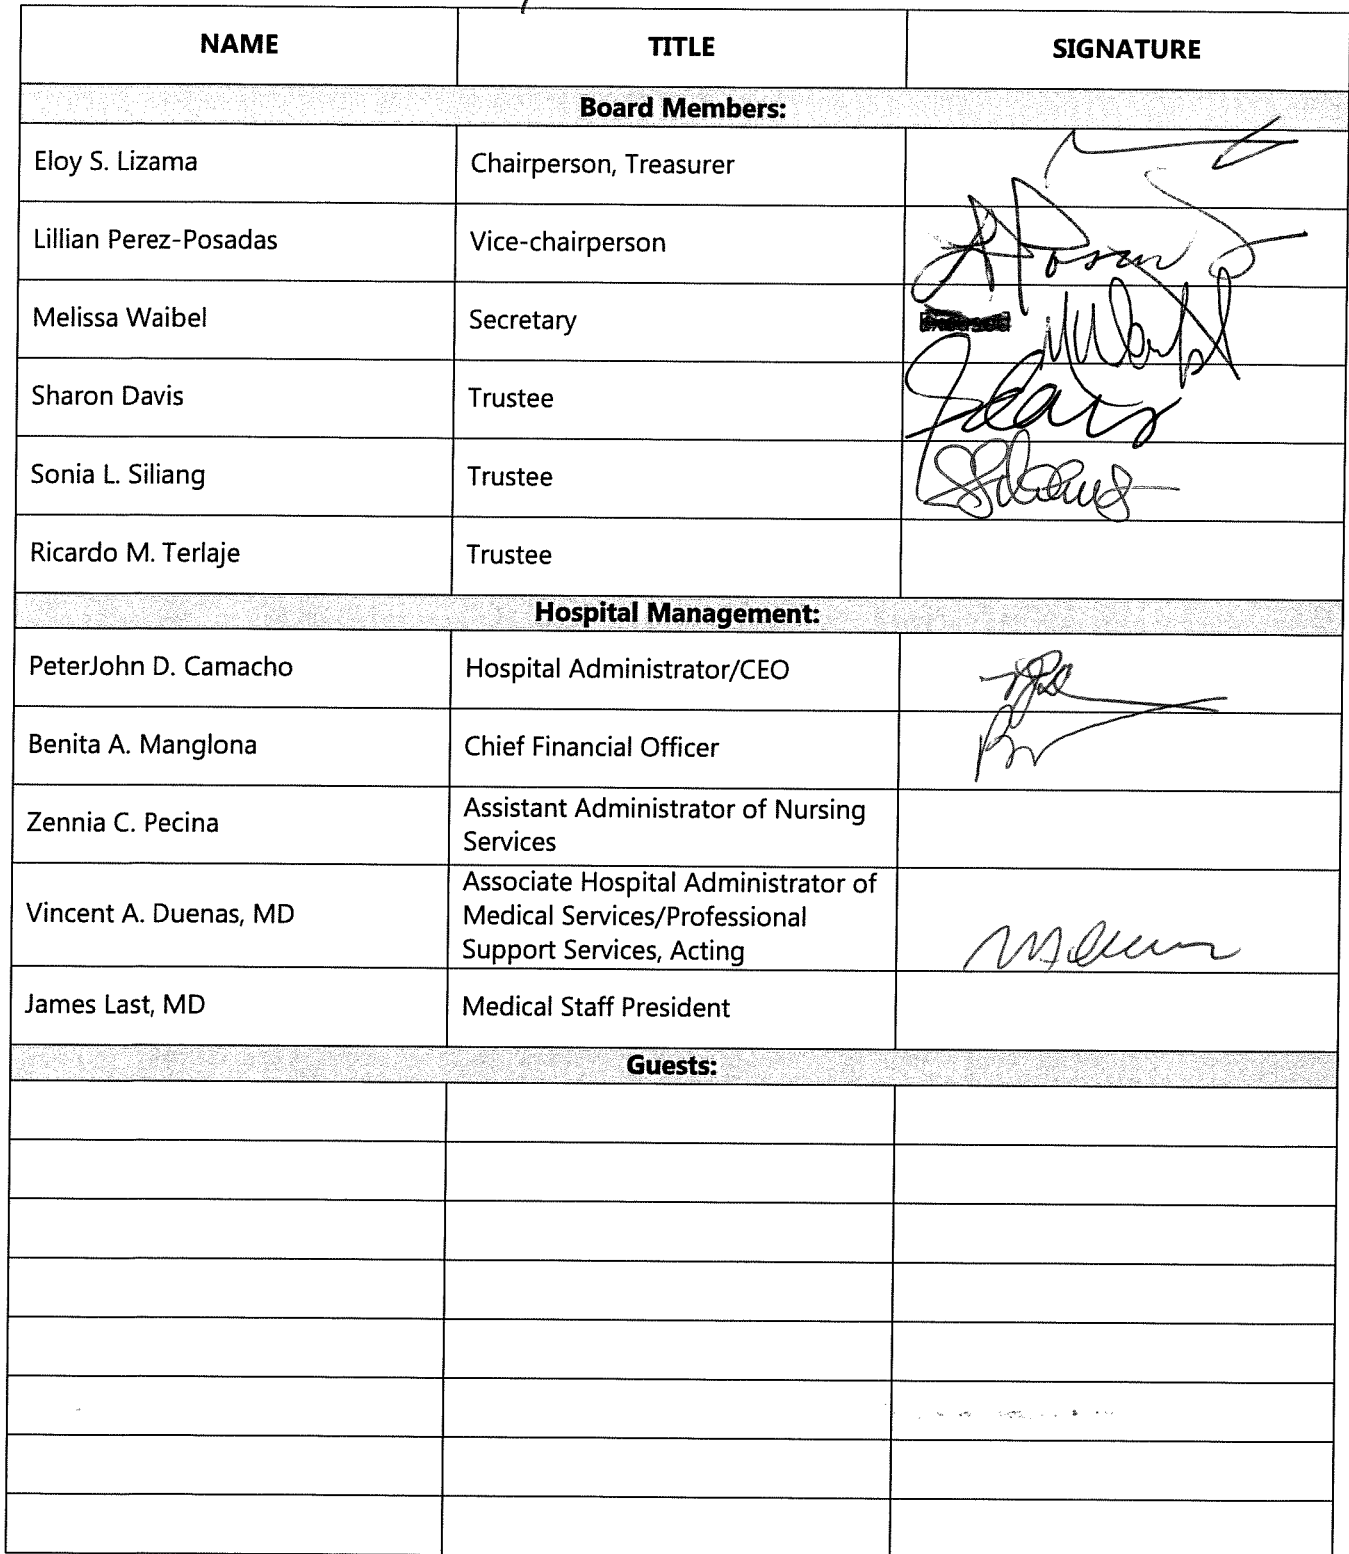 NAME TITLE SIGNATURE
Board Members:
Eloy S. Lizama Chairperson, Treasurer
Lillian Perez-Posadas Vice-chairperson
Melissa Waibel Secretary
Sharon Davis Trustee
Sonia L. Siliang Trustee
Ricardo M. Terlaje Trustee
Hospital Management:
PeterJohn D. Camacho Hospital Administrator/CEO
Benita A. Manglona Chief Financial Officer
Zennia C. Pecina Assistant Administrator of Nursing
Services
Vincent A. Duenas, MD Associate Hospital Administrator of
Medical Services/Professional
Support Services, Acting
James Last, MD Medical Staff President
Guests: